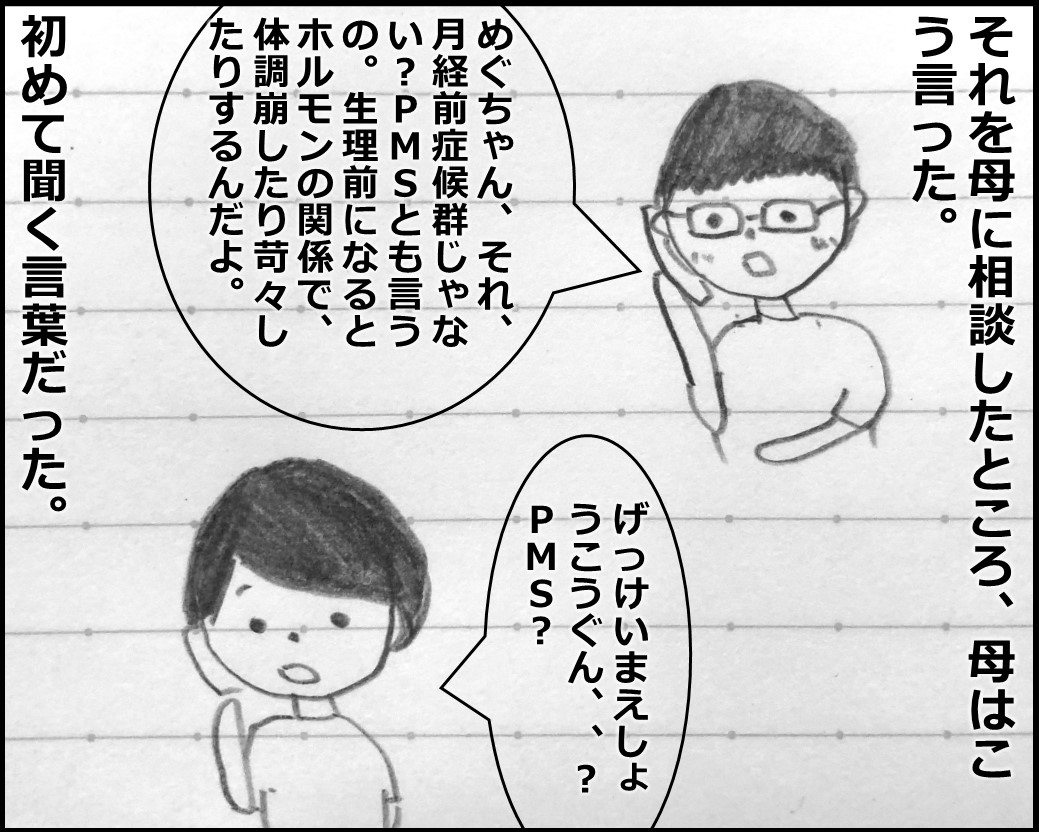 それを母に相談したところ、母はこ
う言った。
めぐちゃん、それ、
月経前症候群じゃな
い？ＰＭＳとも言う
の。生理前になると
ホルモンの関係で、
体調崩したり苛々し
たりするんだよ。
げっけいまえしょ
うこうぐん、、？
ＰＭＳ？
初めて聞く言葉だった。